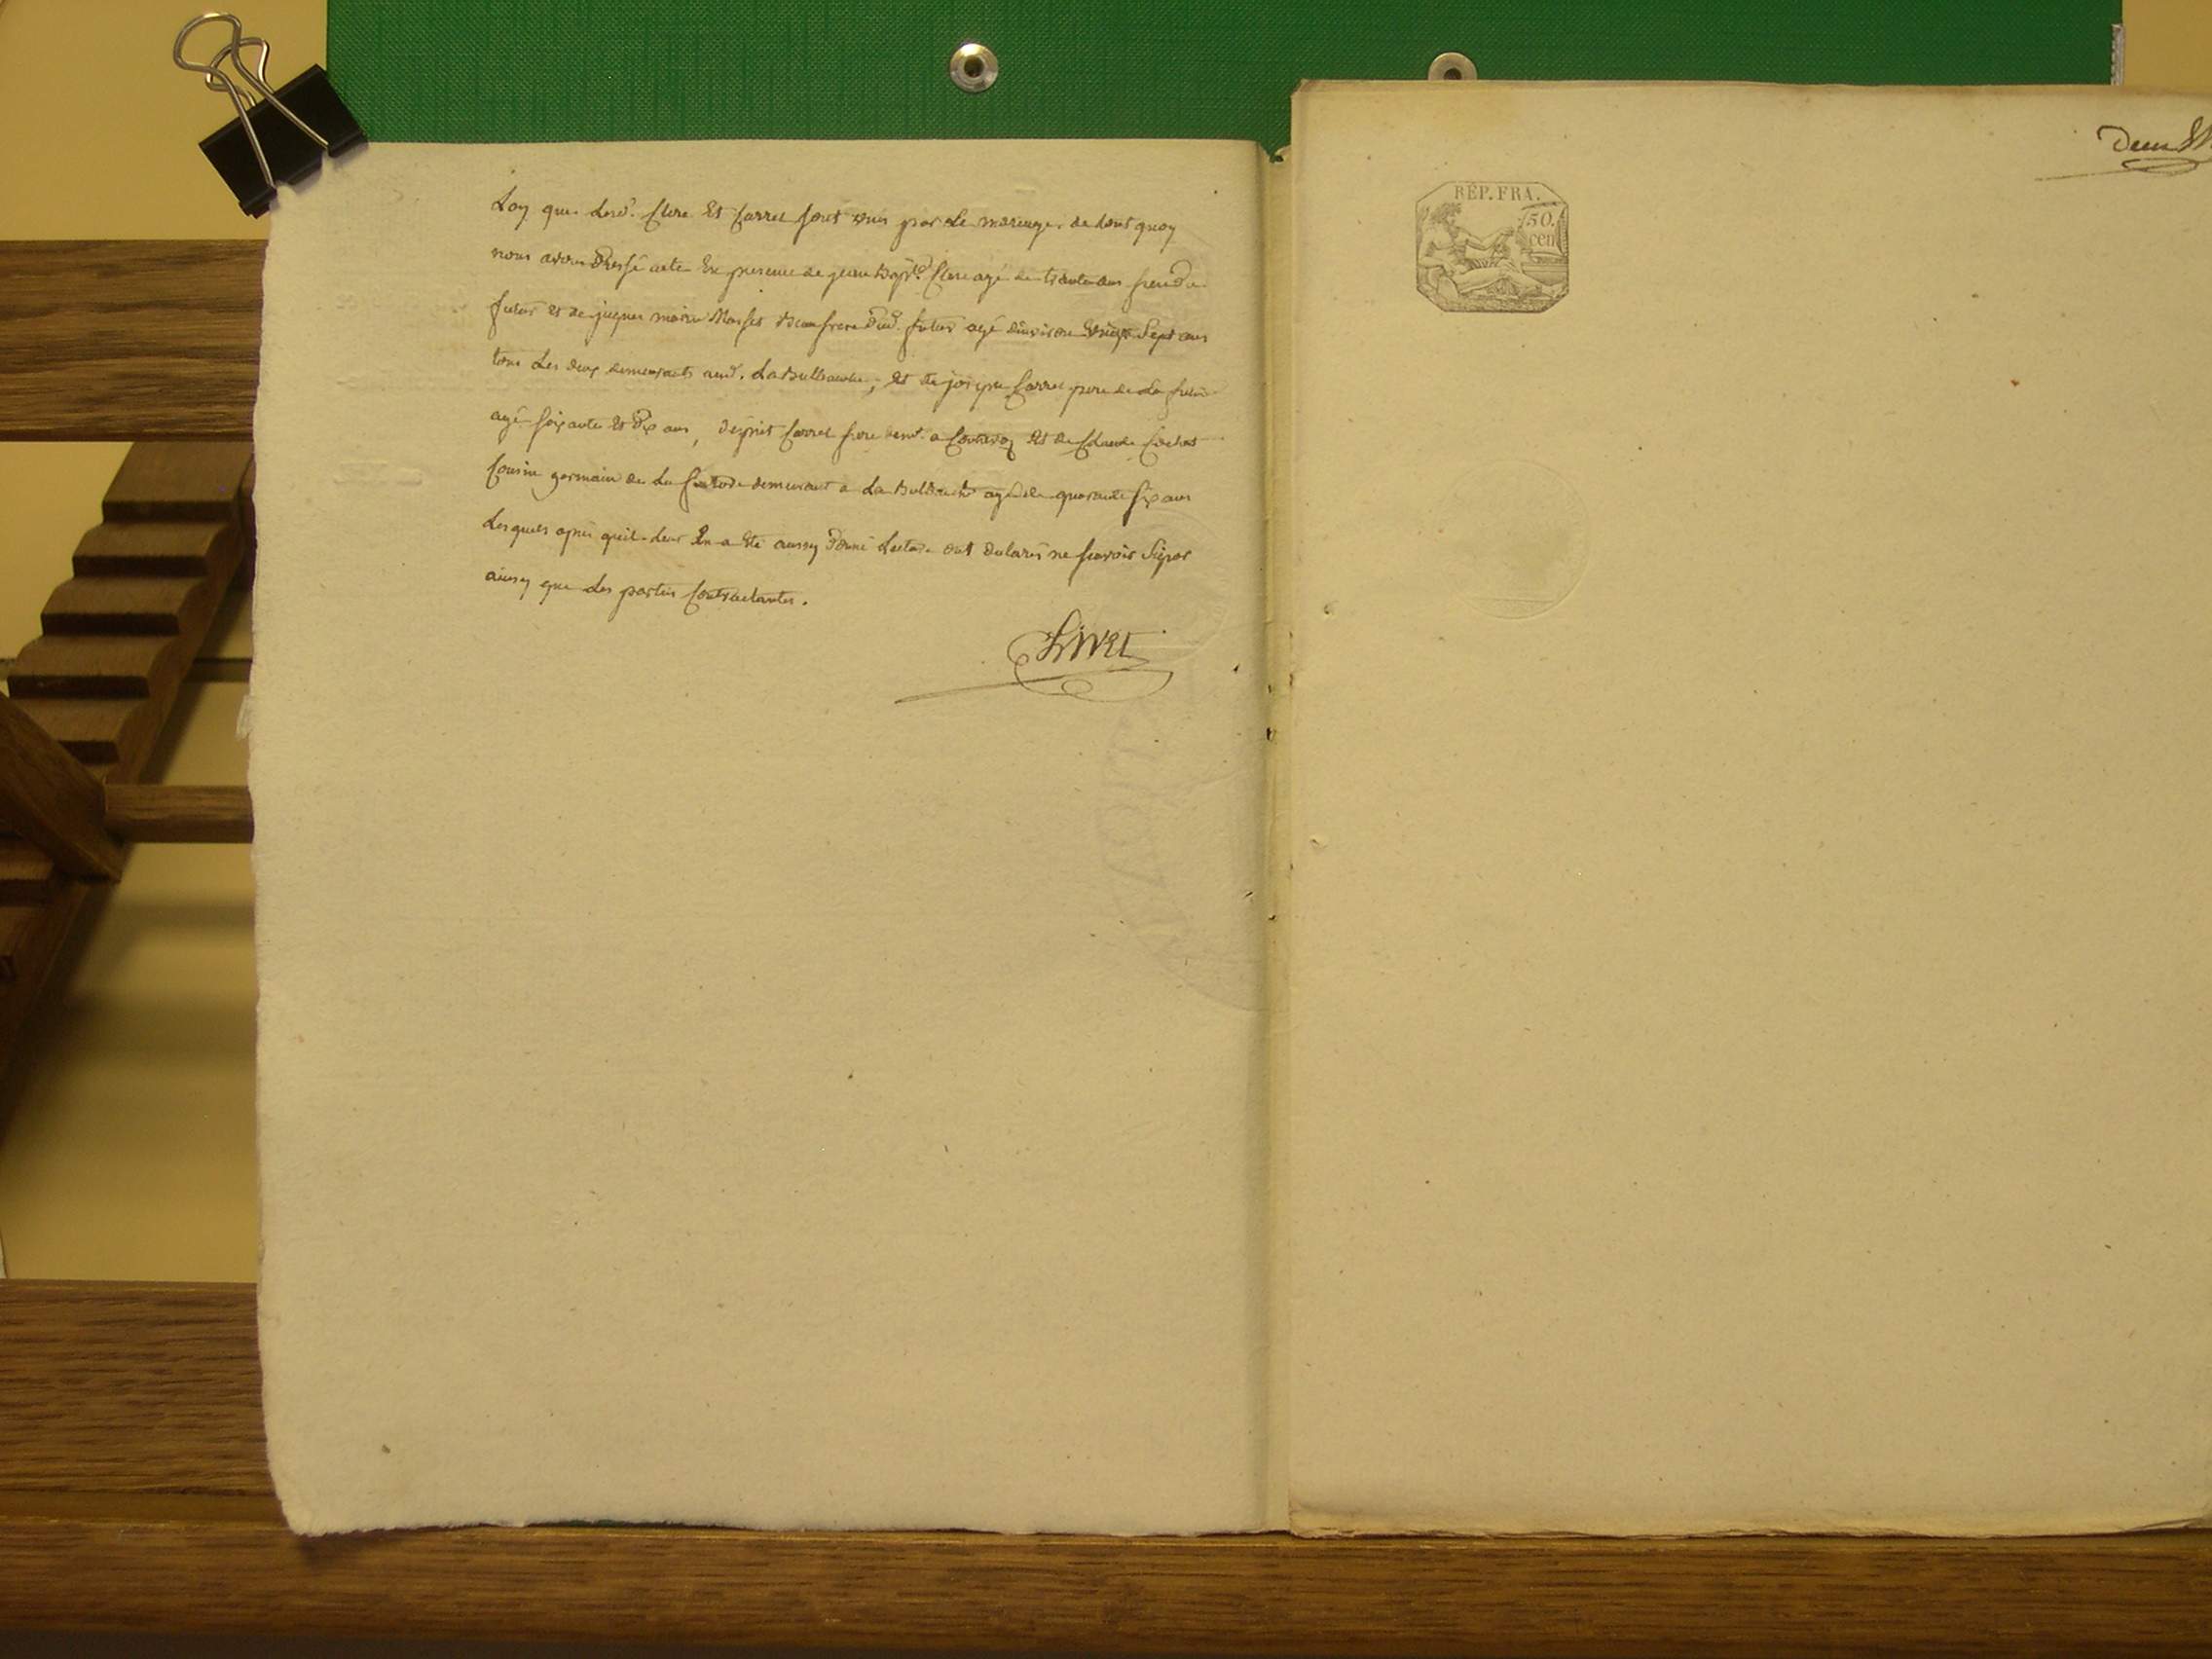 Loy que Lesd. Clere Et Carrel sont unis par Le mariage. de tout quoy
nous avons Dressé acte En presence de jean Bapte Clere agé de trante ans frere du
futur Et de jaques marie Beaufrere Dud. futur agé d'environ Vingt Sept ans
tous Les deux demeurants aud. LaBalbauche, Et de joseph Carrel pere de La future
agé soixante Et Dix ans, Carrel frere demt. a Et de Claude Cochet
Cousin germain de La future demeurant a agé de quarante six ans
Lesquels apres qu'il Leur En a Eté aussy Donné Lecture ont declarés ne scavoir Signer
ainsy que Les parties Contractantes.
REP. FRA.
50.
cen